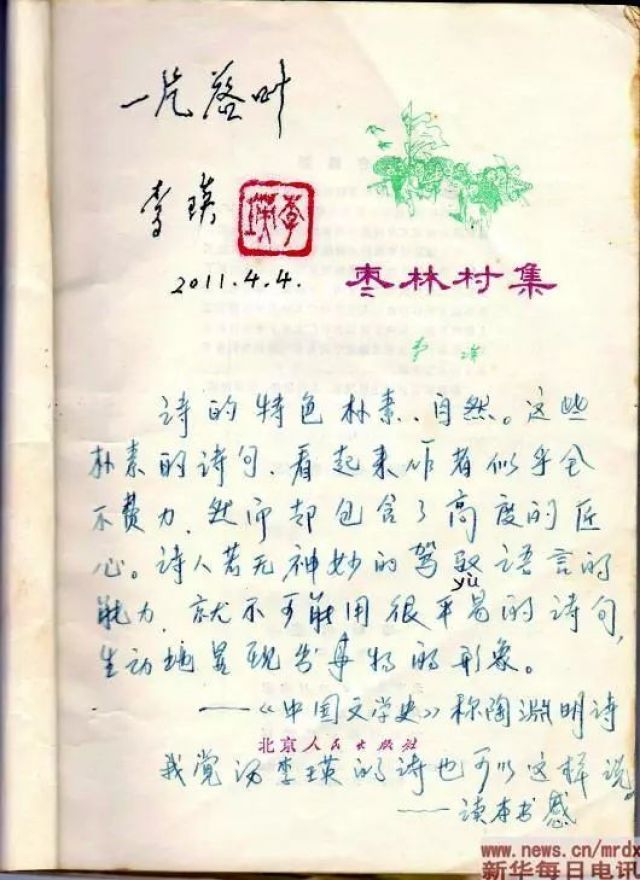 一片落叶
李瑛
李瑛
2011.4.4.
枣林村集
李瑛
诗的特色朴素、自然。这些
朴素的诗句，看起来作者似乎全
不费力，然而却包含了高度的匠
心。诗人若无神妙的驾驭语言的
yù
能力，就不可能用很平易的诗句，
生动地显现出事物的形象。
——《中国文学史》称陶渊明诗
北京人民出版社
我觉得李瑛的诗也可以这样说。
——读本书感
www.news.cn/mrdx
新华每日电讯